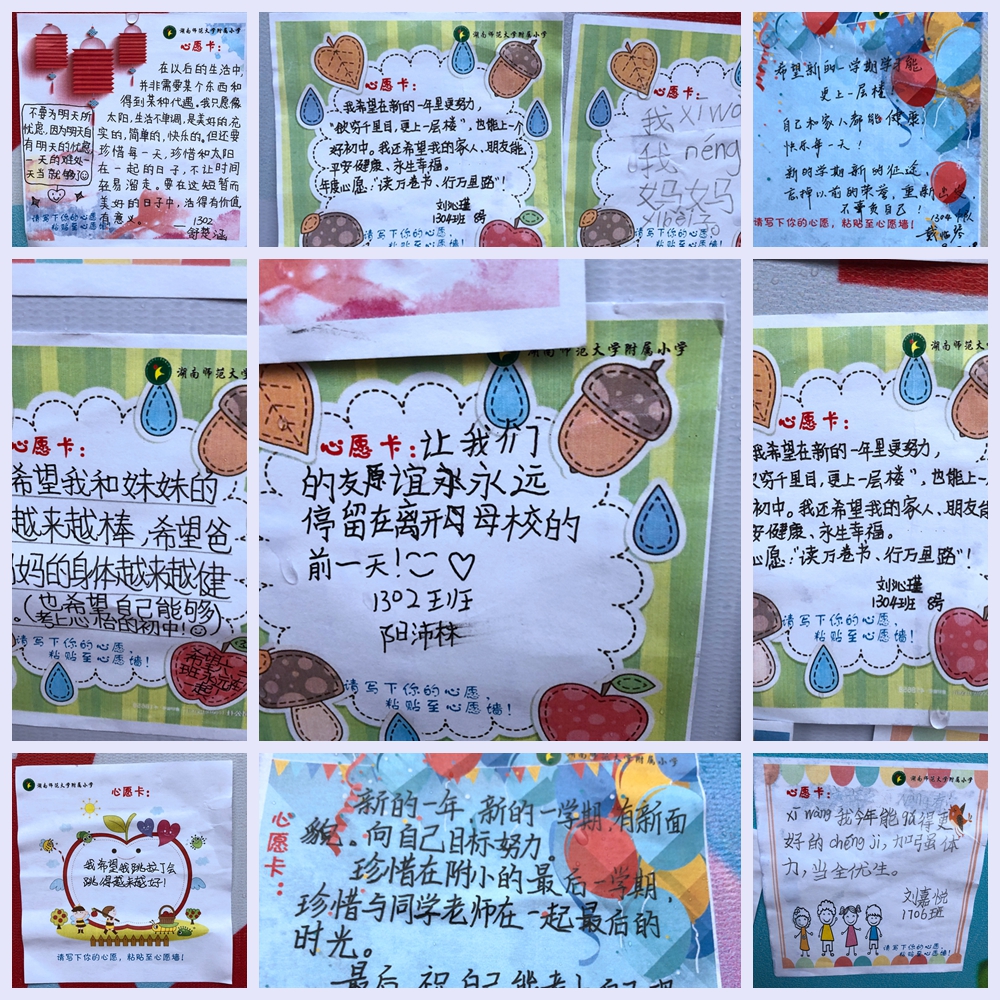 湖南师范大学附属小学
心愿卡:
在以后的生活中,
并非需要某个东西和
得到某种代遇。我只愿像
太阳,生活不单调,是美好的,充
实的,简单的,快乐的。但还要
珍惜每一天,珍惜和太阳
在一起的日子,不让时间
轻易溜走。要在这短暂而
美好的日子中,活得有价值,
有意义。
1302
不要为明天所
忧虑,因为明天自
有明天的忧虑,
一天的难处一
天当就够了
请写下你的心愿,
粘贴至心愿墙!
湖南师范大学附属小学
心愿卡:
我希望在新的一年里更努力,
“欲穷千里目,更上一层楼”,也能上一个
好初中。我还希望我的家人、朋友能
平安健康、永生幸福。
年度心愿:“读万卷书、行万里路”!
刘沁瑾
1304班 8号
请写下你的心愿,
粘贴至心愿墙!
湖南师范大
心愿卡:
我 xī wà
我 néng
妈妈妈
请写下你的心愿,
粘贴至心愿墙!
希望新的一学期学习能
更上一层楼!
自己和家人都能健康!
快乐每一天!
新的学期新的征途,
忘掉以前的荣誉,重新出发
不辜负自己!
1304
请写下你的心愿,粘贴至心愿墙!
湖南师范大
心愿卡:
希望我和妹妹的
越来越棒,希望爸
妈的身体越来越健
。(也希望自己能够)
(考上心怡的初中!)
请写下你的心愿,
粘贴至心愿墙!
希望六
班永远在
起
湖南师范大学附属小学
心愿卡:让我们
的友谊永永远
停留在离开母校的
前一天!
1302班
阳沛林
请写下你的心愿,
粘贴至心愿墙!
湖南师范
心愿卡:
我希望在新的一年里更努力,
欲穷千里目,更上一层楼”,也能上一
初中。我还希望我的家人、朋友能
安健康、永生幸福。
心愿:“读万卷书、行万里路”!
刘沁瑾
1304班 8号
请写下你的心愿,
粘贴至心愿墙!
湖南师范大学附属小学
心愿卡:
我希望我跳拉丁会
跳得越来越好!
请写下你的心愿,粘贴至心愿墙!
心愿卡:
新的一年,新的一学期,有新面
貌。向自己目标努力。
珍惜在附小的最后一学期,
珍惜与同学老师在一起最后的
时光。
最后,祝自己能考上
湖南师范大学附属小学
心愿卡:
xī wàng 我今年能取得更
好的 chéng jì,加强体
力,当全优生。
刘嘉悦
1706班
请写下你的心愿,
粘贴至心愿墙!